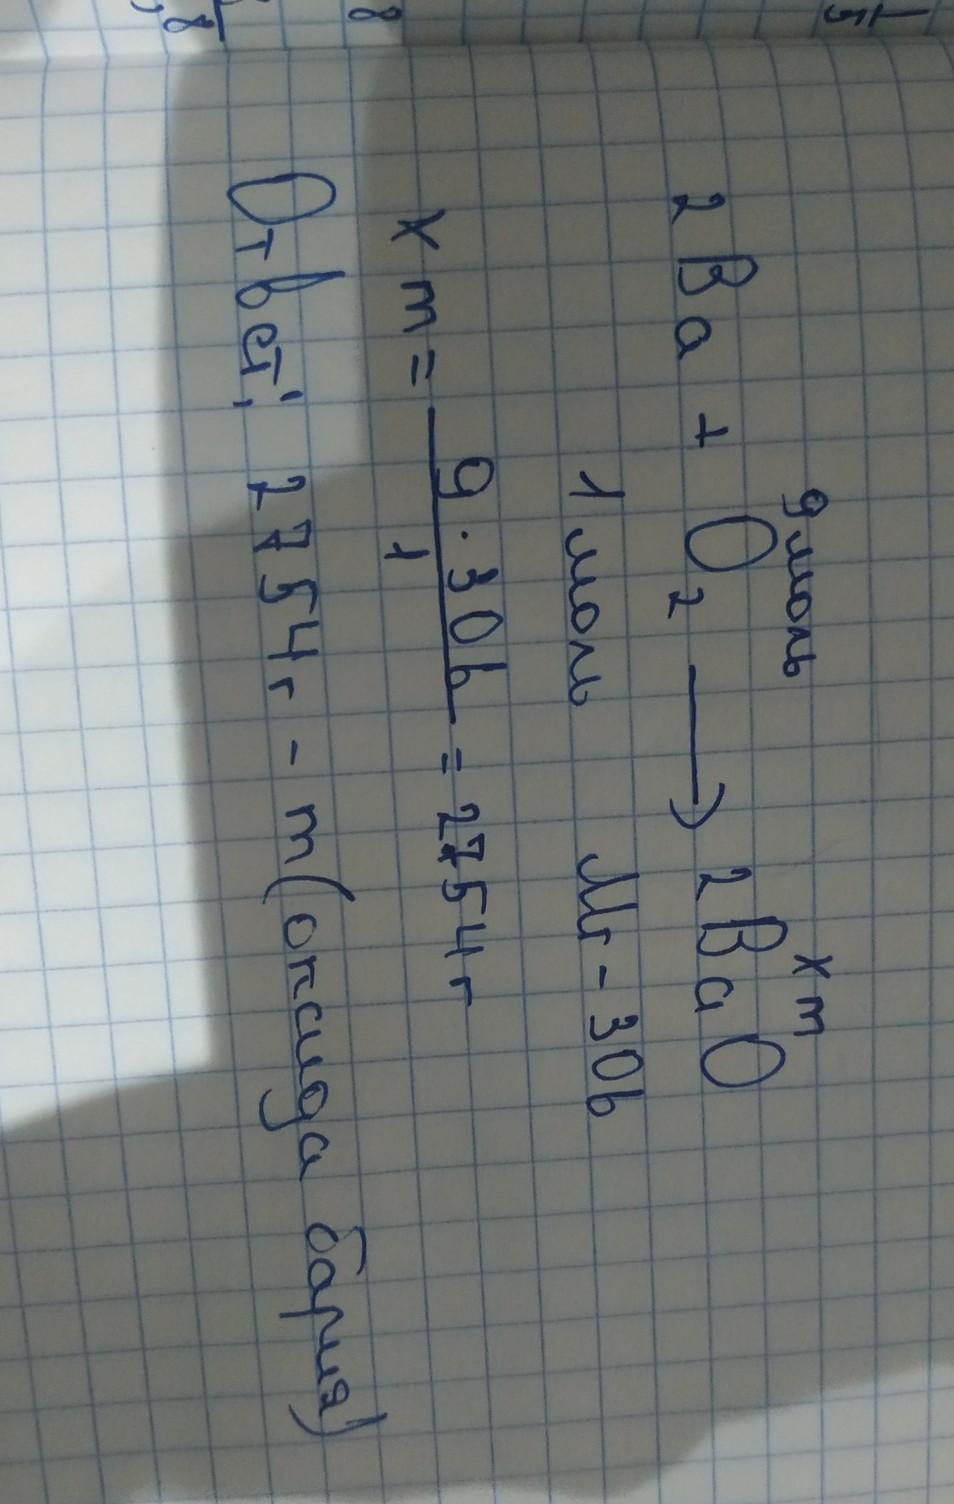 9 моль x m
2 Ba + O2 → 2 BaO
1 моль Mr - 306
x m = 9 · 306 / 1 = 2754 г
Ответ: 2754 г - m (оксида бария)